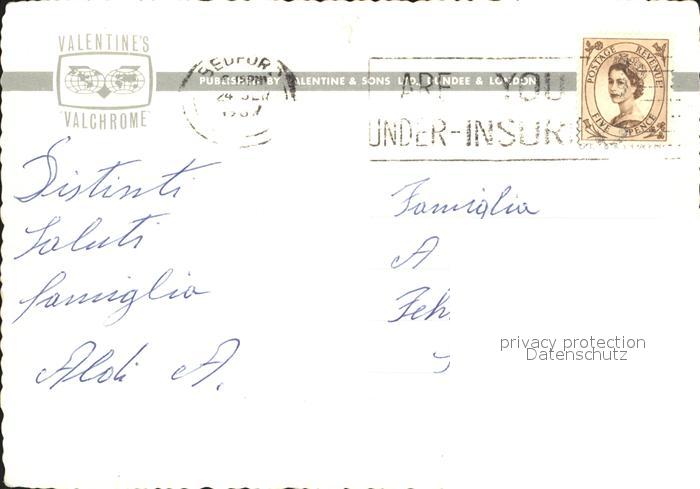 VALENTINE'S
"VALCHROME"
PUBLISHED BY VALENTINE & SONS LTD. DUNDEE & LONDON
BEDFORD
24 SEP
ARE YOU
UNDER-INSUR
POSTAGE REVENUE
FIVE PENCE
Distinti
Saluti
famiglia
Aldi A.
Famiglia
A
Feh
privacy protection
Datenschutz